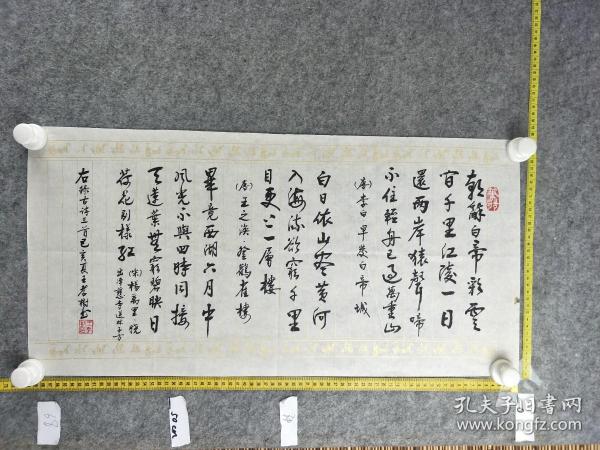 朝辞白帝彩雲
間千里江陵一日
還两岸猿聲啼
不住輕舟已過萬重山
(唐)李白早发白帝城
白日依山尽黄河
入海流欲窮千里
目更上一層樓
(唐)王之涣登鹳雀楼
畢竟西湖六月中
風光不與四時同接
天蓮葉無窮碧映日
荷花别樣红
(宋)楊萬里晓
出净慈寺送林子方
右録古诗三首己亥夏王
书
50cm
孔夫子旧书网